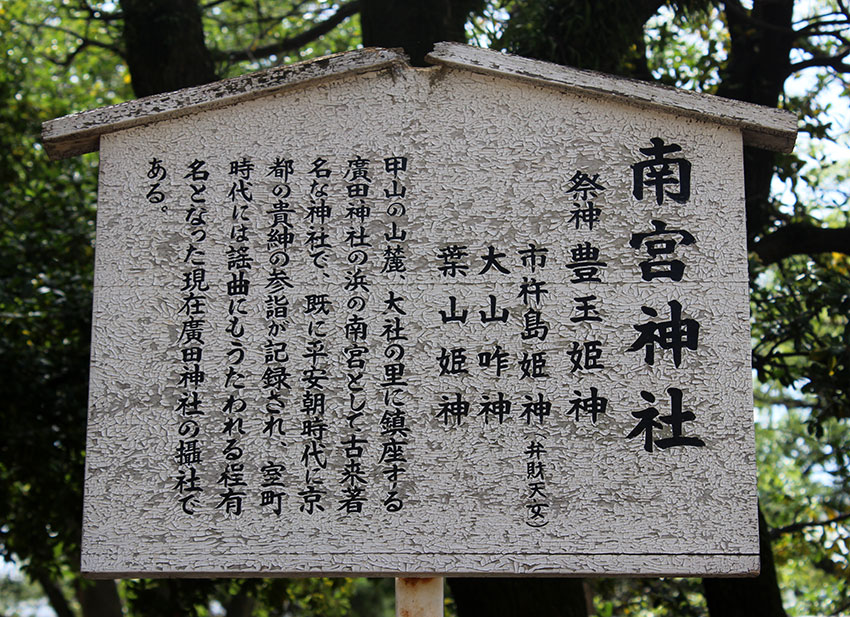 南宮神社
祭神 豊玉姫神
市杵島姫神(弁財天女)
大山咋神
葉山姫神
甲山の山麓、大社の里に鎮座する
廣田神社の浜の南宮として古来著
名な神社で、既に平安朝時代に京
都の貴紳の参詣が記録され、室町
時代には謡曲にもうたわれる程有
名となった現在廣田神社の攝社で
ある。